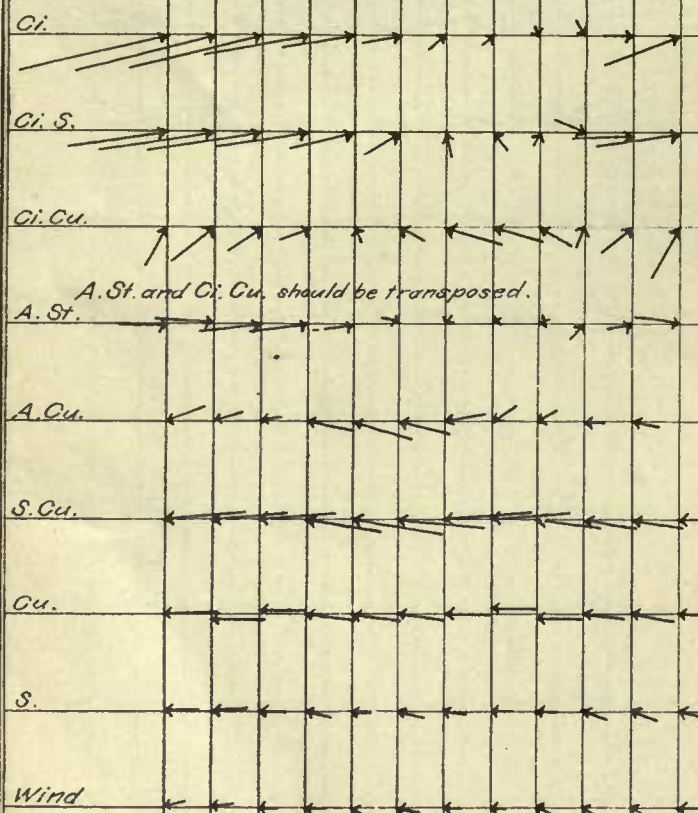 Ci.
Ci. S.
Ci. Cu.
A. St. and Ci. Cu. should be transposed.
A. St.
A. Cu.
S. Cu.
Cu.
S.
Wind